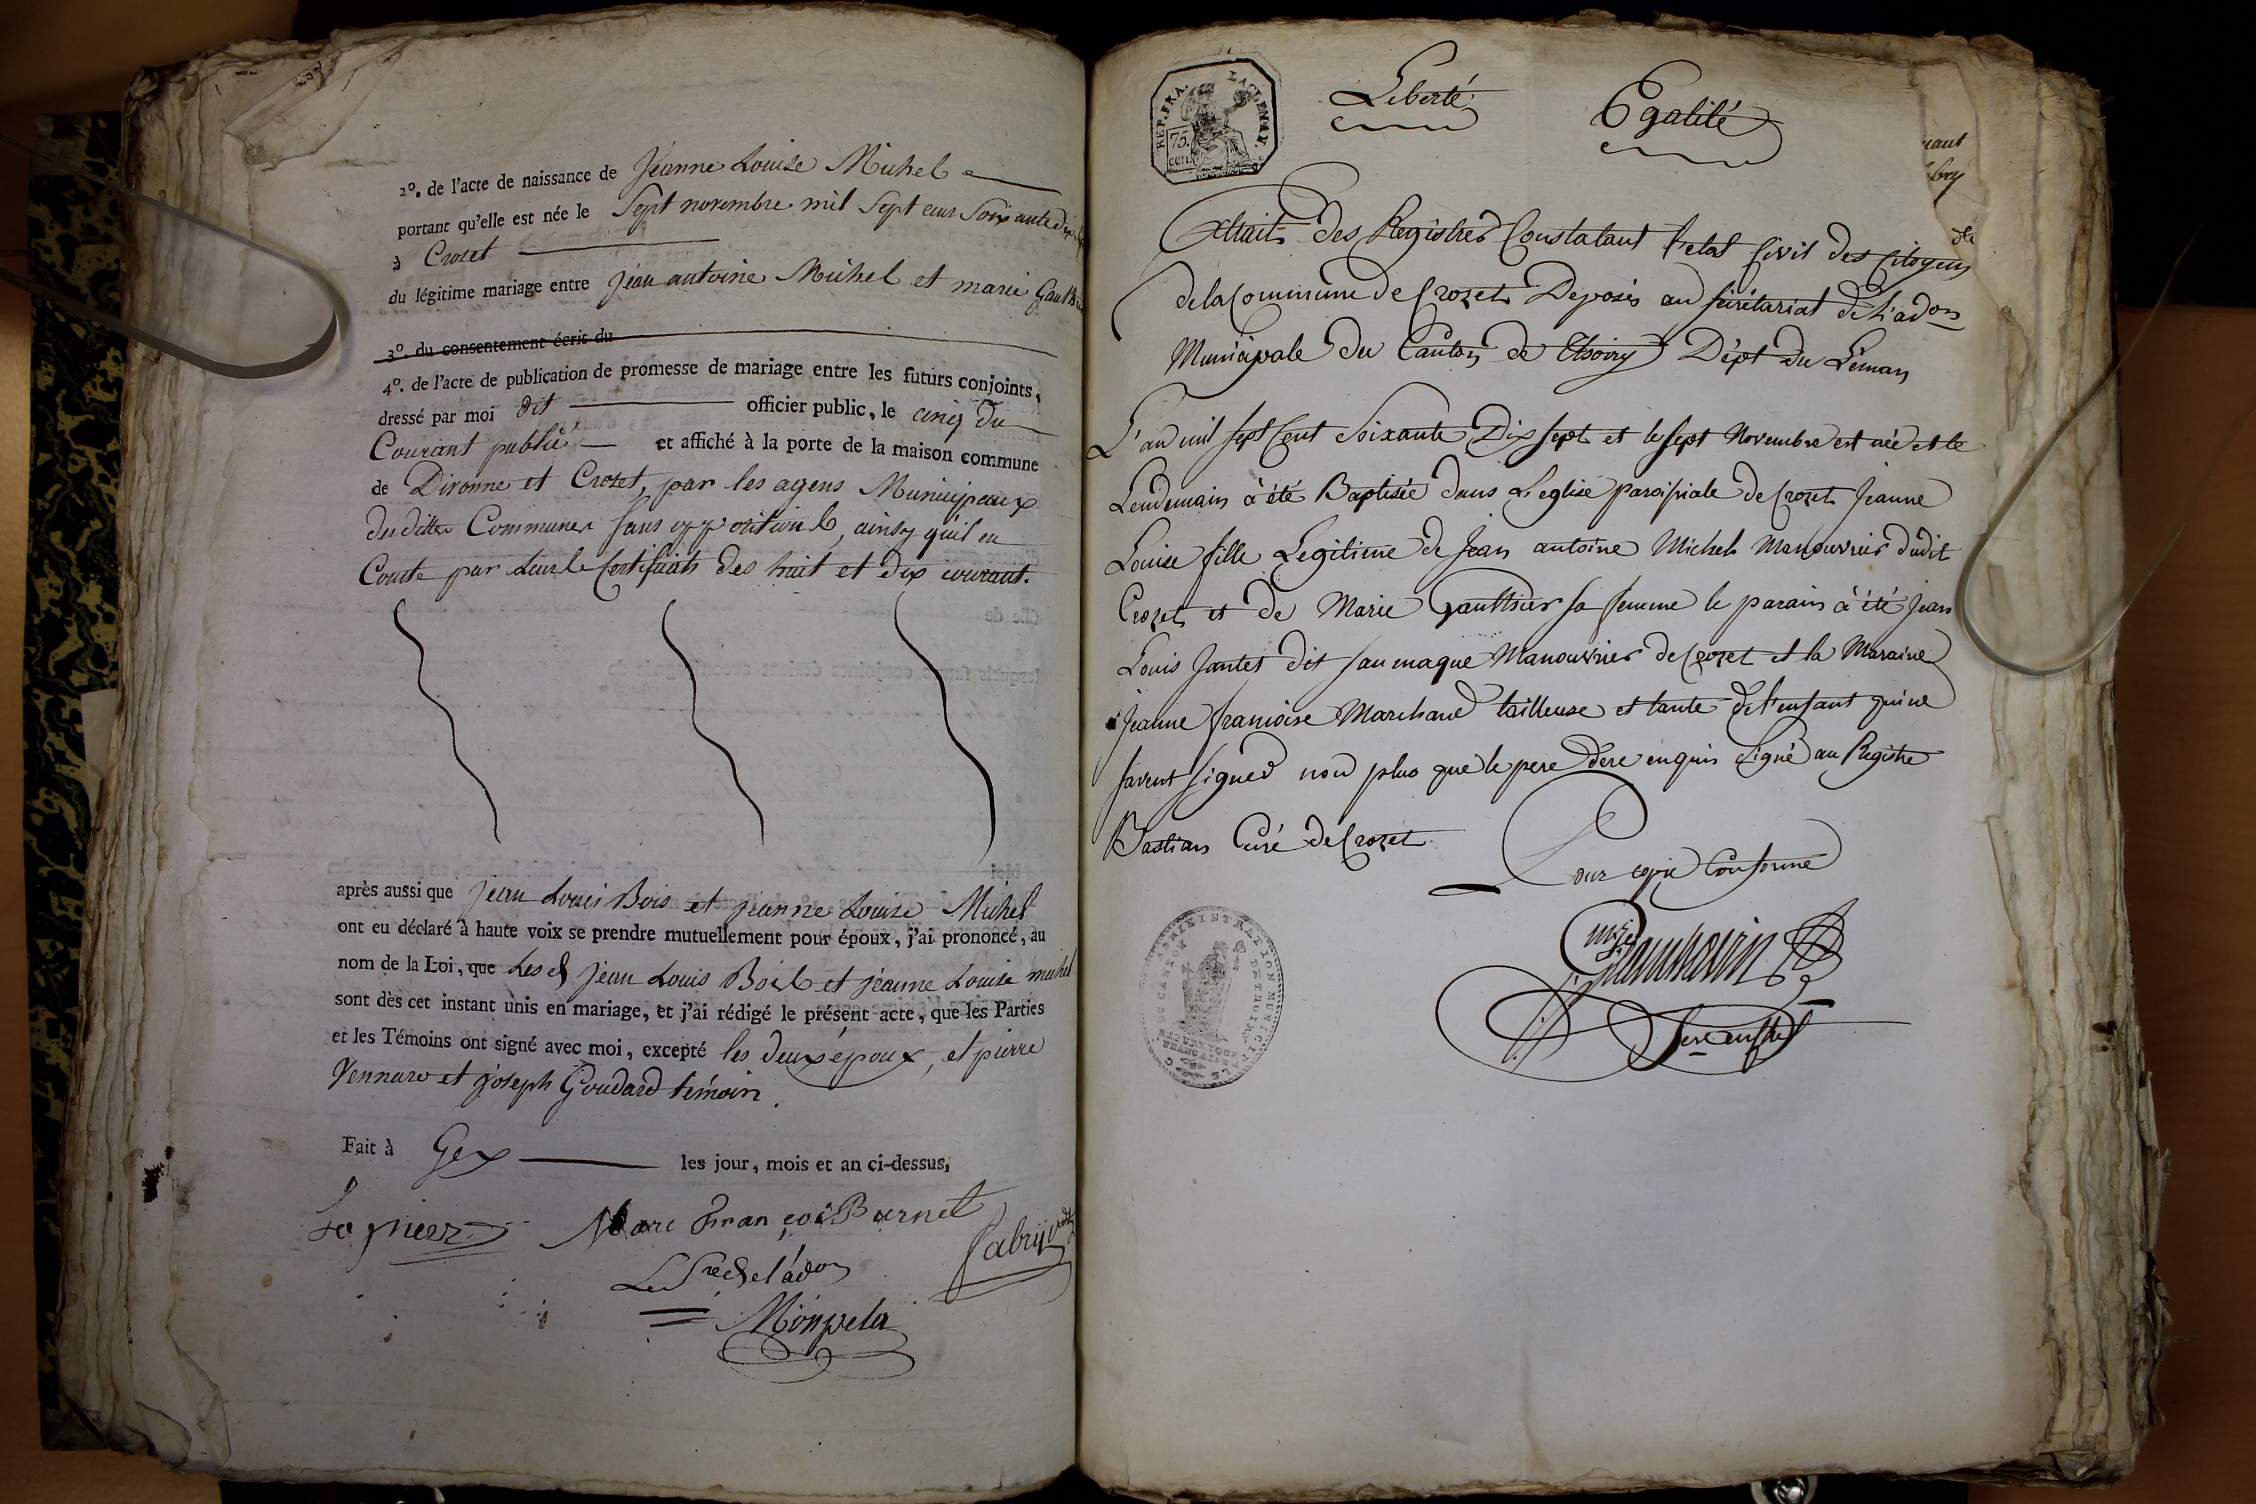 2°. de l'acte de naissance de Jeanne Louise Michel
portant qu'elle est née le Sept novembre mil Sept cens Soixante dix
à Crozet
du légitime mariage entre Jean antoine Michel et marie Gaulthier
3°. du consentement écris du
4°. de l'acte de publication de promesse de mariage entre les futurs conjoints,
dressé par moi dit officier public, le cinq du
Courant publié et affiché à la porte de la maison commune
de Divonne et Crozet, par les agens Municipeaux
desdittes Communes sans opposition, ainsy qu'il en
Conste par leurs Certificats des huit et dix courant.
après aussi que Jean Louis Bois et jeanne Louise Michel
ont eu déclaré à haute voix se prendre mutuellement pour époux, j'ai prononcé, au
nom de la Loi, que Lesd Jean Louis Bois et jeanne Louise michel
sont dès cet instant unis en mariage, et j'ai rédigé le présent acte, que les Parties
et les Témoins ont signé avec moi, excepté les deux époux, et pierre
et joseph Goudard témoin.
Fait à Gex les jour, mois et an ci-dessus,
Marc François Burnet
Fabry
Le Sre de l'adon
REP. FRA. 75. CENT.
Liberté
Egalité
Extrait des Registres Constatant l'etat Civil des Citoyens
de la Commune de Crozet Deposés au secrétariat de L'adon
Municipale du Canton de Thoiry Dépt du Léman
L'an mil sept Cent Soixante Dix sept et le sept Novembre est née et le
Lendemain à été Baptisée dans L'eglise paroissiale de Crozet Jeanne
Louise fille Legitime de Jean antoine Michel Manouvrier dudit
Crozet et de Marie Gaulthier sa femme le parain à été Jean
Louis Jantet dit Manouvrier de Crozet et la Maraine
Jeanne françoise Marchand tailleuse et tante de l'enfant qui ne
savent signer non plus que le pere de ce enquis Signé au Registre
Bastian Curé de Crozet
Pour copie Conforme
ADMINISTRATION MUNICIPALE
DU CANTON DE THOIRY